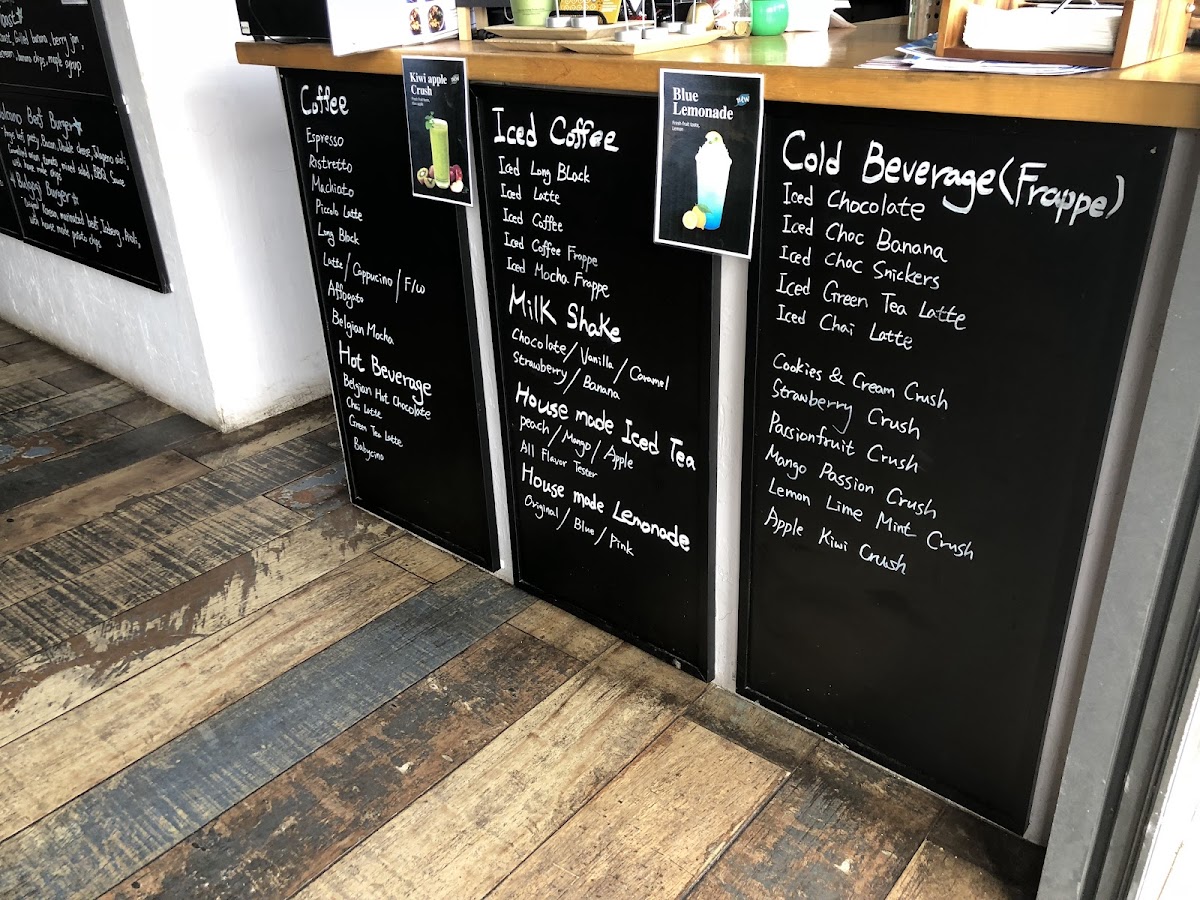 Toast
banana, berry jam,
banana chips, maple syrup
Volcano Beef Burger
beef patty, Bacon, Double cheese, Jalapeno aioli,
onion, tomato, mixed salad, BBQ Sauce
with house made chips
Bulgogi Burger
Original Korean marinated beef, Iceberg, Aioli,
with house made potato chips
Coffee
Espresso
Ristretto
Machiato
Piccolo Latte
Long Black
Latte/Cappucino/F/w
Affogato
Belgian Mocha
Hot Beverage
Belgian Hot Chocolate
Chai Latte
Green Tea Latte
Babycino
Kiwi apple
Crush
Iced Coffee
Iced Long Black
Iced Latte
Iced Coffee
Iced Coffee Frappe
Iced Mocha Frappe
Milk Shake
Chocolate/Vanilla/Caramel
Strawberry/Banana
House made Iced Tea
peach/Mango/Apple
All Flavor Tester
House made Lemonade
Original/Blue/Pink
Blue
Lemonade
Fresh fruit taste,
Lemon
Cold Beverage(Frappe)
Iced Chocolate
Iced Choc Banana
Iced Choc Snickers
Iced Green Tea Latte
Iced Chai Latte
Cookies & Cream Crush
Strawberry Crush
Passionfruit Crush
Mango Passion Crush
Lemon Lime Mint Crush
Apple Kiwi Crush